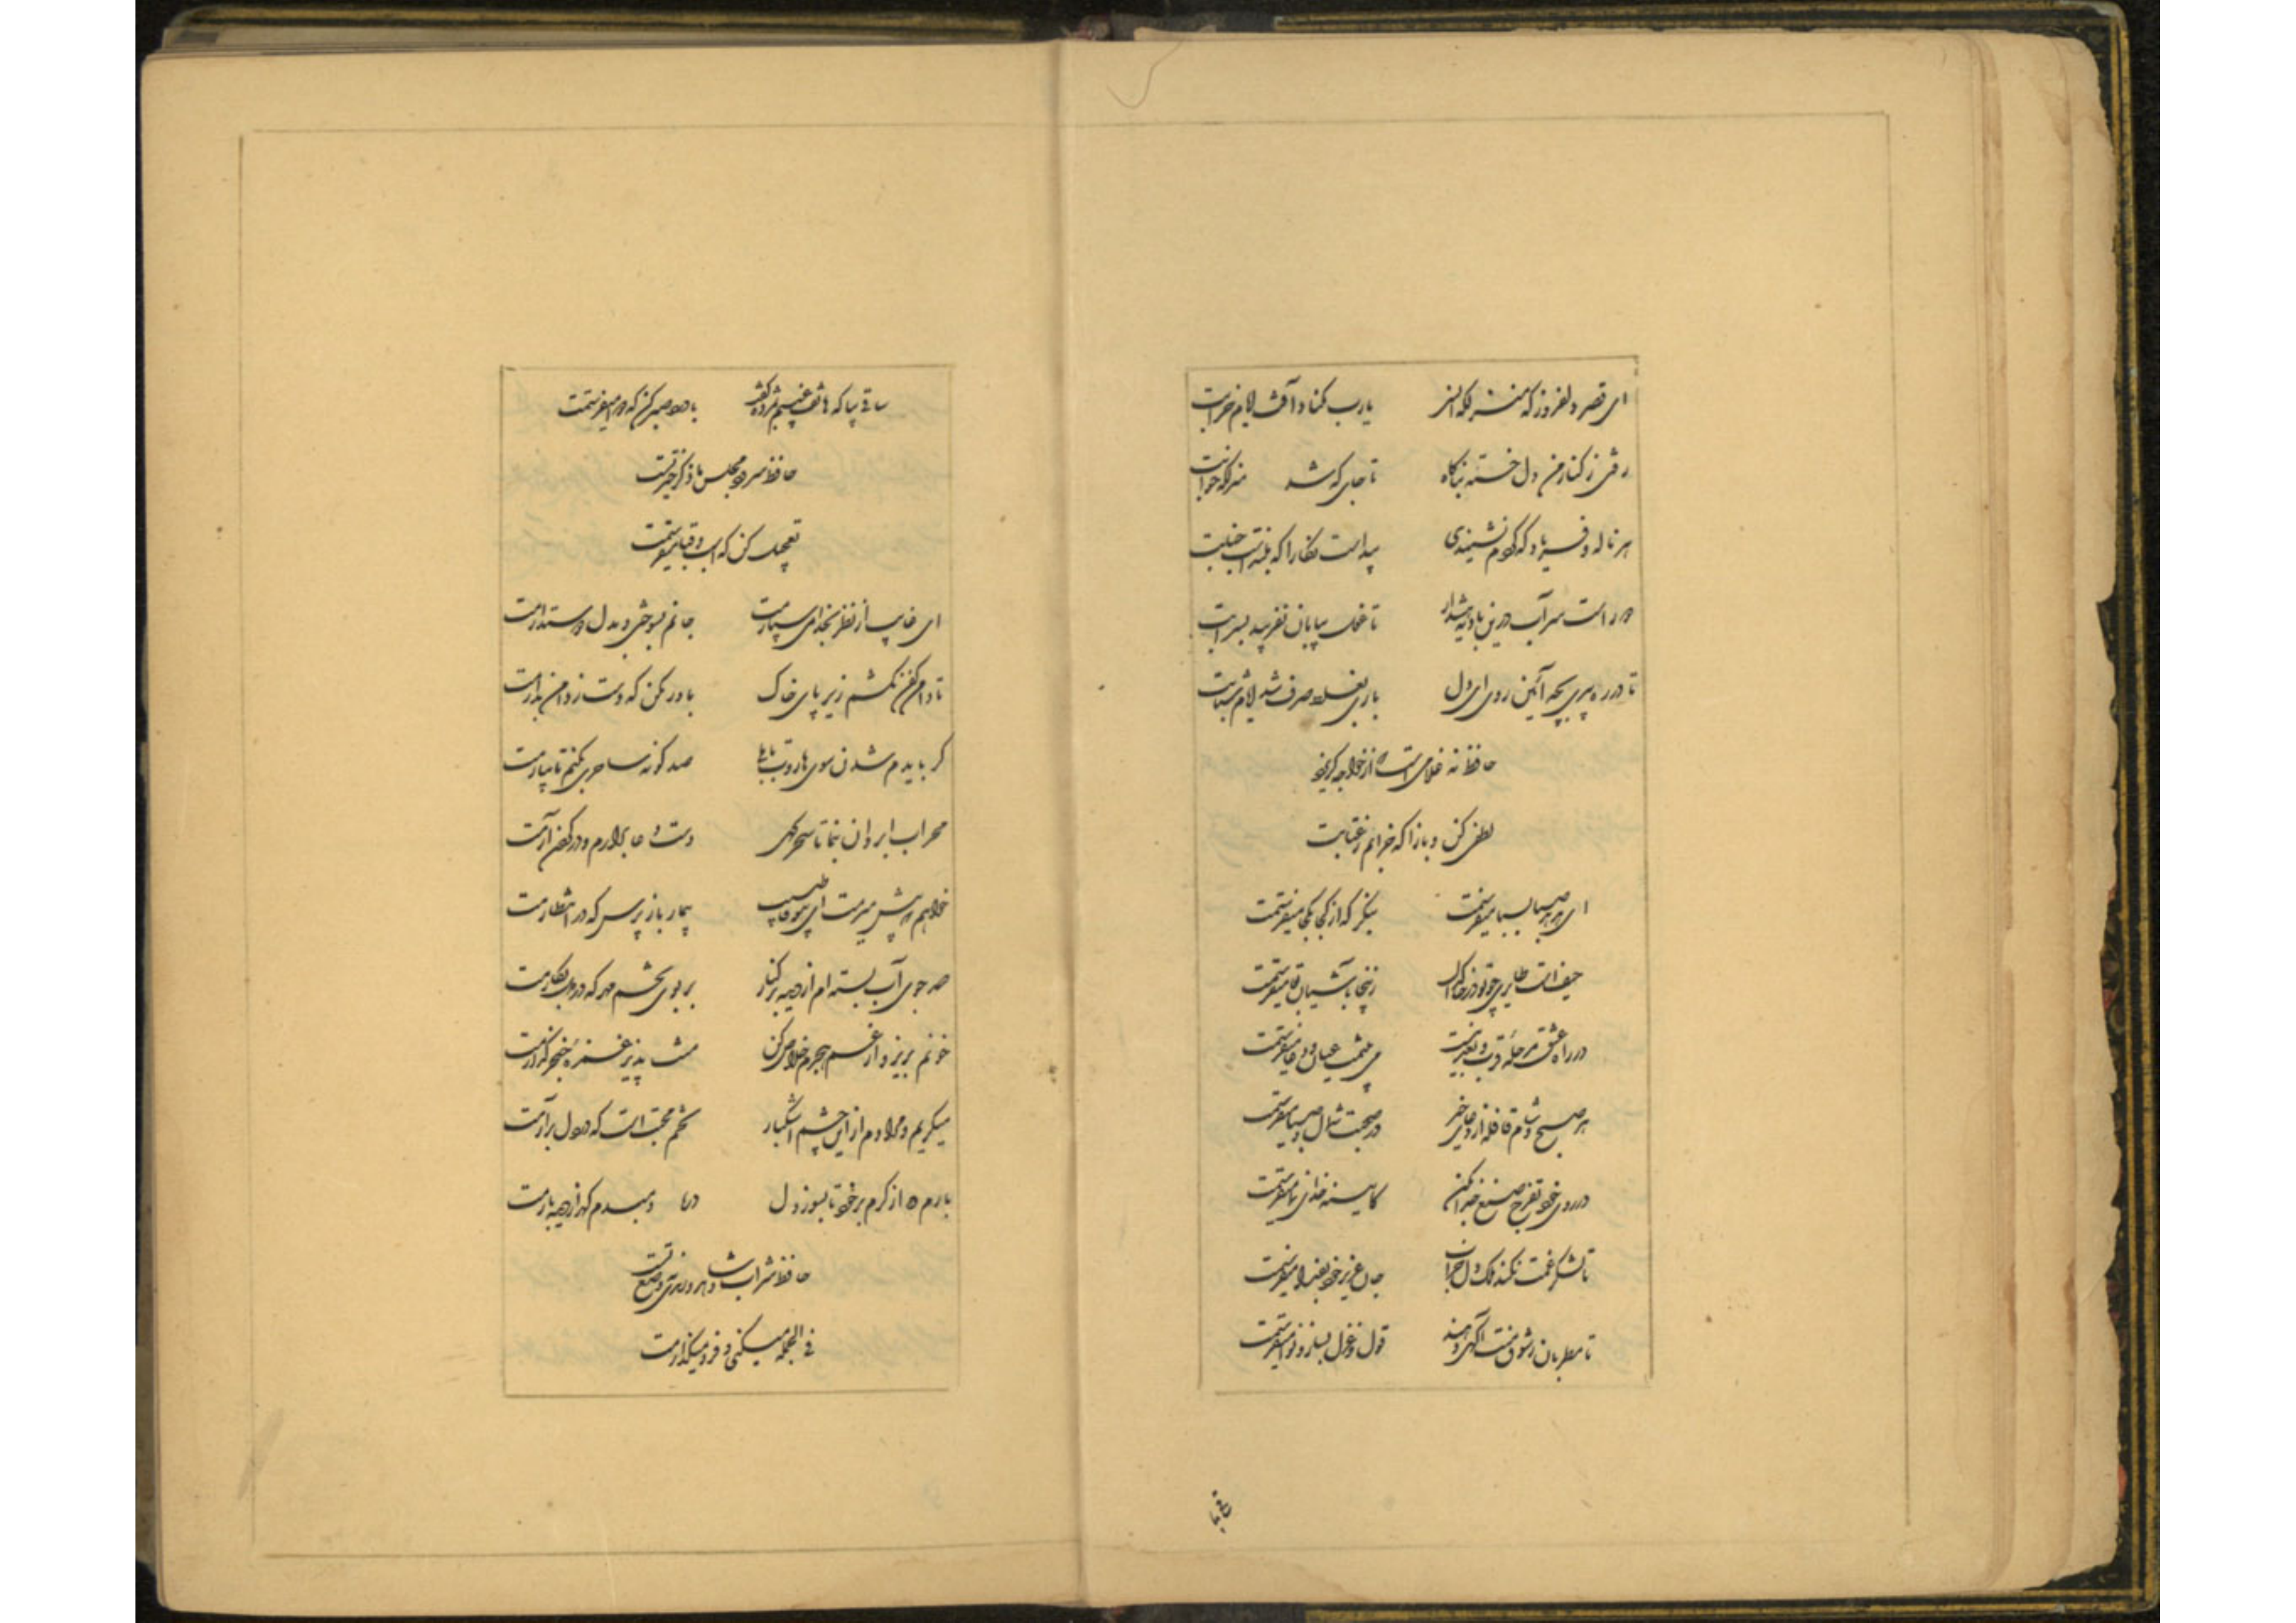 ای قصر دلفروز که منزلگه انسی یارب مکناد آفت ایام خرابت
رفتی ز کنار من دل خسته بناگاه تا جای که شد منزلگه خوابت
هر ناله و فریاد که کردم نشنیدی پیداست نگارا که بلندست جنابت
دور است سر آب درین بادیه هشدار تا غول بیابان نفریبد بسرابت
تا در ره پیری بچه آئین روی ای دل باری بغلط صرف شد ایام شبابت
حافظ نه غلامی است که از خواجه گریزد
لطفی کن و بازا که خرابم ز عتابت
ای هدهد صبا بسبا میفرستمت بنگر که از کجا بکجا میفرستمت
حیف است طایری چو تو در خاکدان زینجا بآشیان وفا میفرستمت
در راه عشق مرحله قرب و بعد نیست می بینمت عیان و دعا میفرستمت
هر صبح و شام قافله از دعای خیر در صحبت شمال و صبا میفرستمت
در روی خود تفرج صنع خدا بکن کایینه خدای نما میفرستمت
تا لشکر غمت نکند ملک دل خراب جان عزیز خود بفدا میفرستمت
تا مطربان ز شوق منت آگهی دهند قول و غزل بساز و نوا میفرستمت
ساقی بیا
ساقی بیا که هاتف غیبم بمژده گفت با درد صبر کن که دوا میفرستمت
حافظ سرود مجلس ما ذکر خیر تست
تعجیل کن که اسب و قبا میفرستمت
ای غایب از نظر بخدا می سپارمت جانم بسوختی و بدل دوست دارمت
تا دامن کفن نکشم زیر پای خاک باور مکن که دست ز دامن بدارمت
گر بایدم شدن سوی هاروت بابلی صد گونه ساحری بکنم تا بیارمت
محراب ابروان بنما تا سحرگهی دست دعا برآرم و در گردن آرمت
خواهم که پیش میرمت ای بیوفا طبیب بیمار باز پرس که در انتظارمت
صد جوی آب بسته ام از دیده بر کنار بر بوی تخم مهر که در دل بکارمت
خونم بریز و از غم هجرم خلاص کن منت پذیر غمزه خنجر گذارمت
میگریم و مرادم از این چشم اشکبار تخم محبت است که در دل برآرمت
بارم ده از کرم بر خود تا بسوز دل در پا دمبدم گهر از دیده بارمت
حافظ شراب و شاهد و رندی نه وضع تست
فی الجمله میکنی و فرو میگذارمت